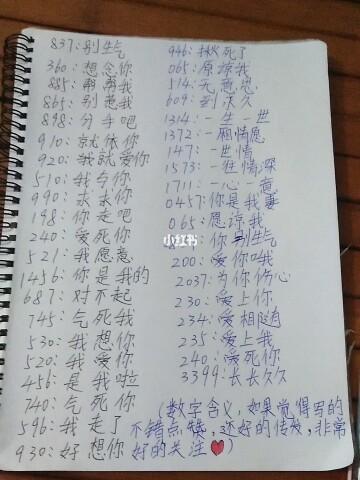 837:别生气
360:想念你
885:帮帮我
865:别惹我
898:分手吧
910:就依你
920:我就爱你
510:我与你
990:求求你
198:你走吧
240:爱死你
521:我愿意
1456:你是我的
687:对不起
745:气死我
530:我想你
520:我爱你
456:是我啦
740:气死你
596:我走了
930:好想你
946:揪死了
065:原谅我
514:无意思
609:到永久
1314:一生一世
1372:一厢情愿
147:一世情
1573:一往情深
1711:一心一意
0457:你是我妻
065:愿谅我
你别生气
200:爱你哦
2037:为你伤心
230:爱上你
234:爱相随
235:爱上我
240:爱死你
3399:长长久久
(数字含义,如果觉得写的
不错点赞,还好的传发,非常
好的关注❤)
小红书